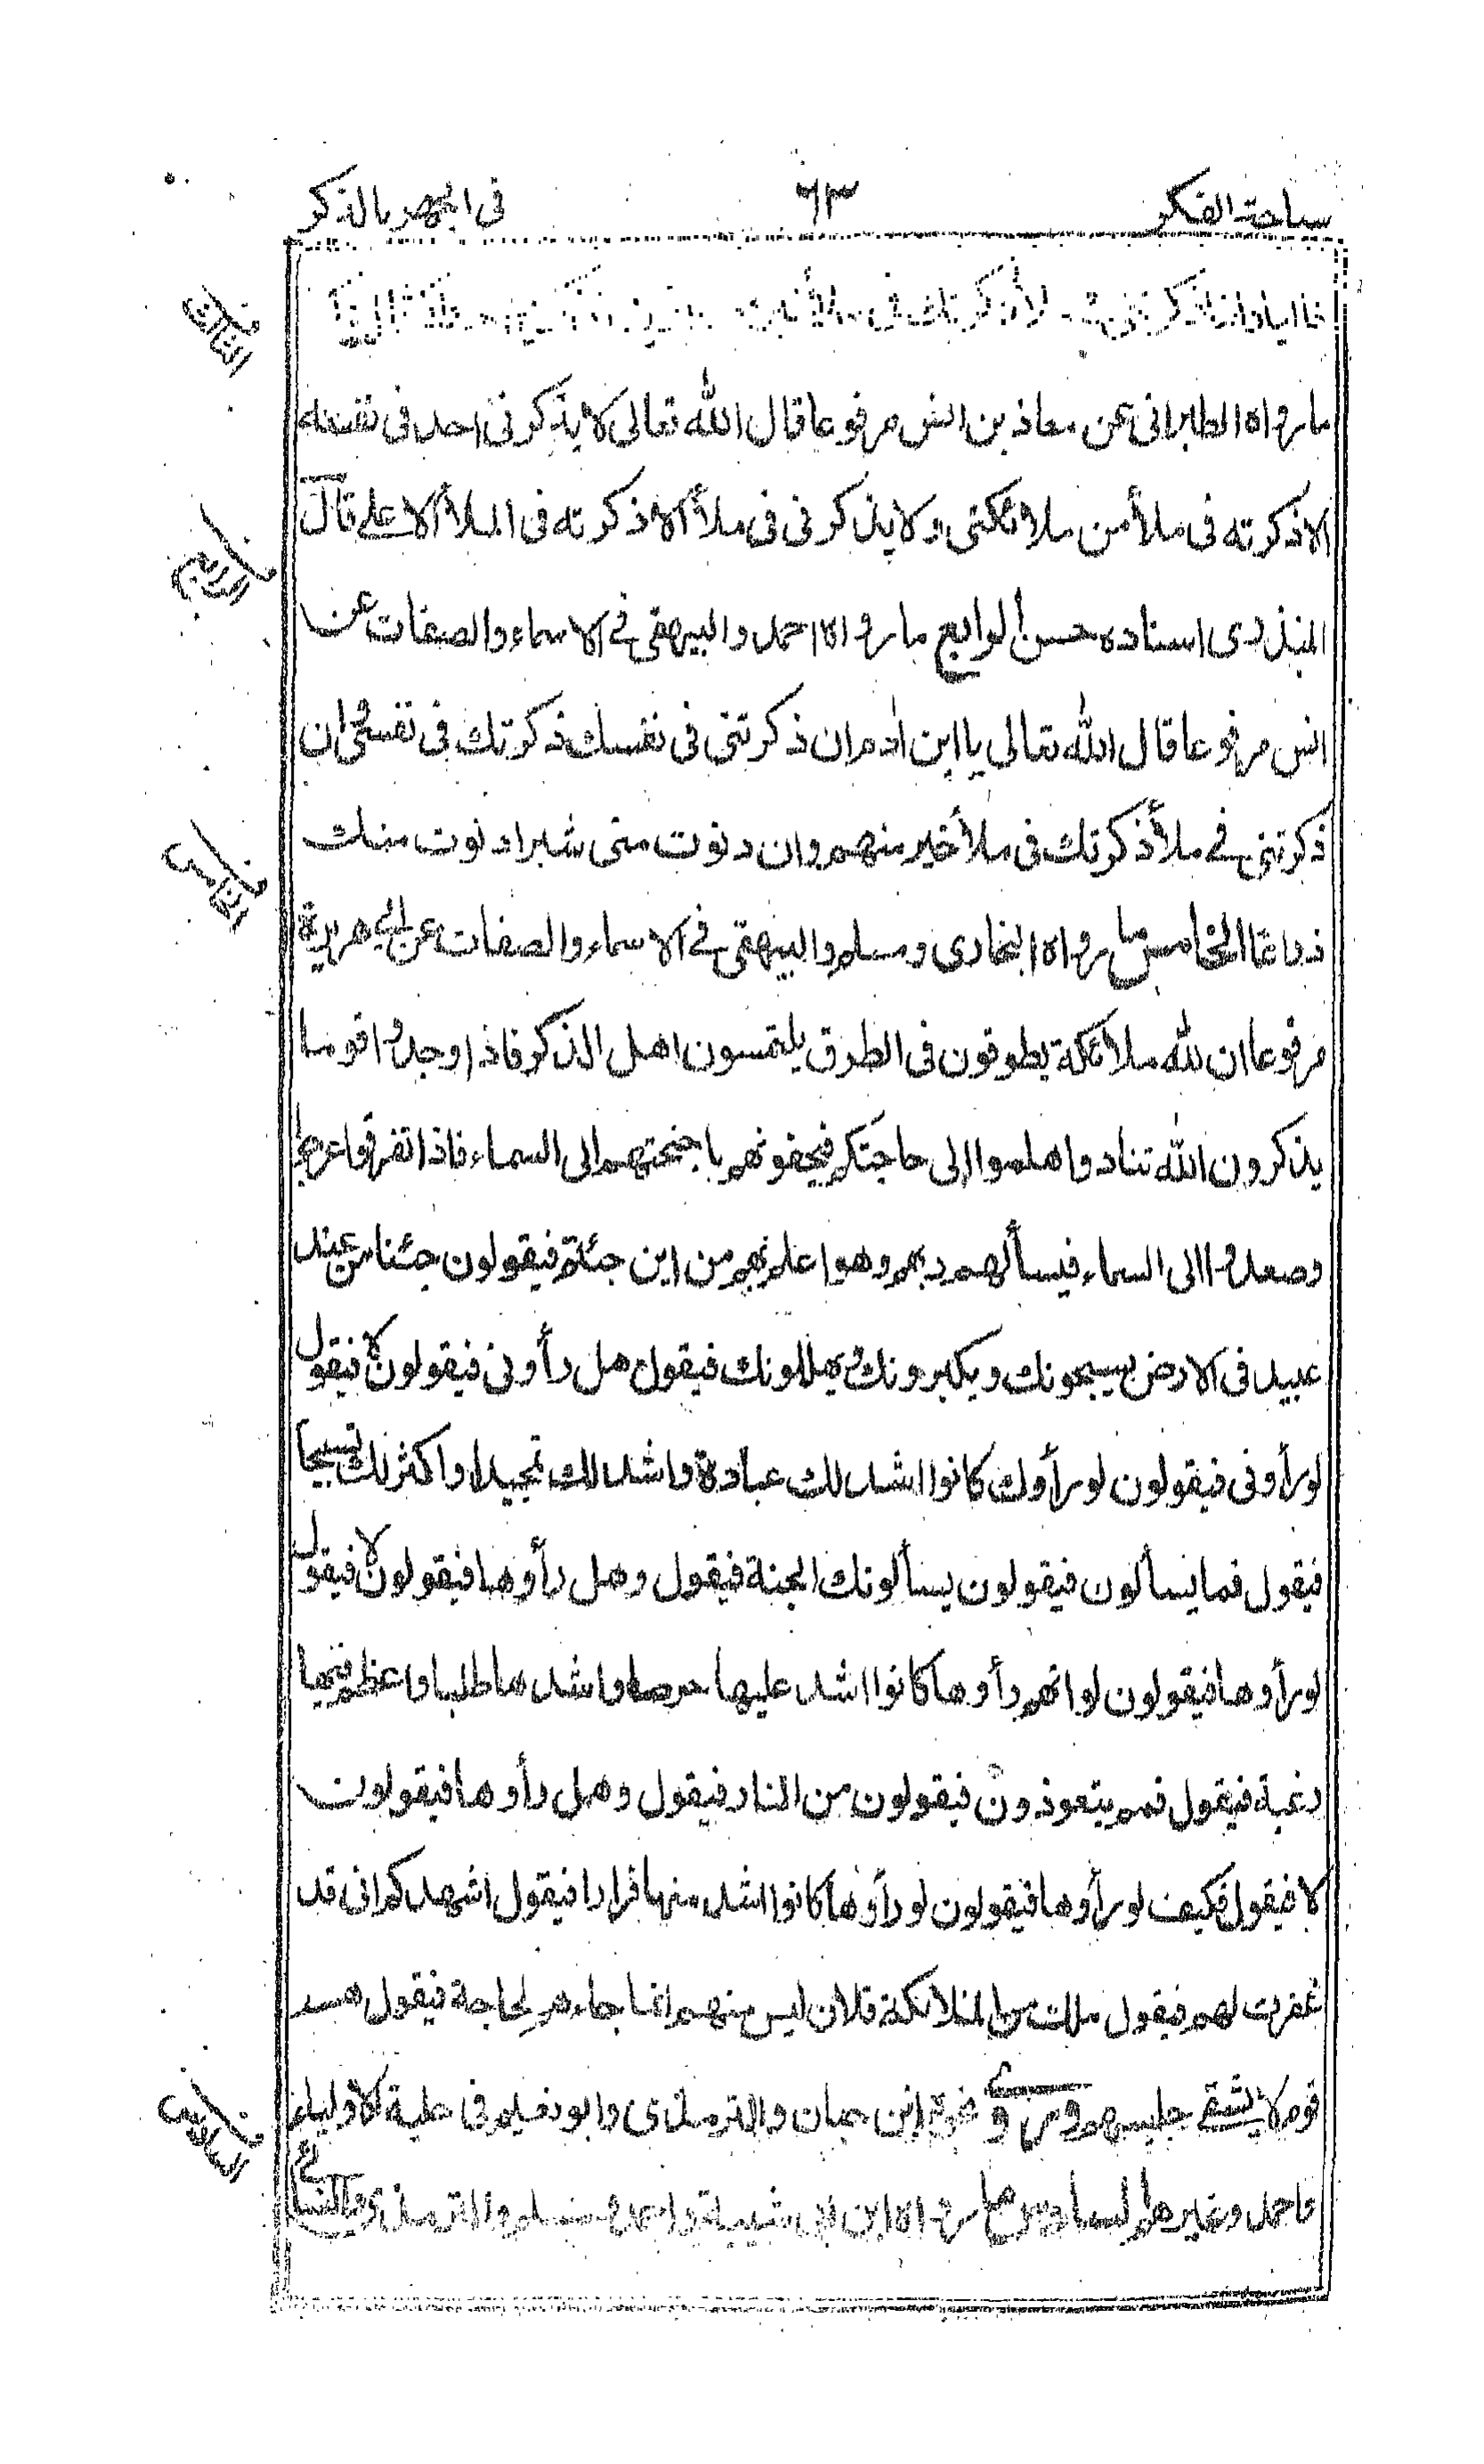 ساحة الفكر ٦٣ فى الجهر بالذكر
خاليا واذا ذكرتنى فى ملأ ذكرتك فى ملأ خير من
ما رواه الطبرانى عن معاذ بن انس مرفوعا قال الله تعالى لا يذكرنى احد فى نفسه
الا ذكرته فى ملأ من ملائكتى ولا يذكرنى فى ملأ الا ذكرته فى الملأ الاعلے قال
المنذرى اسناده حسن الرابع ما رواه احمد والبيهقى فے الاسماء والصفات عن
انس مرفوعا قال الله تعالى يا ابن اٰدم ان ذكرتنى فى نفسك ذكرتك فى نفسى وان
ذكرتنى فے ملأ ذكرتك فى ملأ خير منهم وان دنوت منى شبرا دنوت منك
ذراعا الخامس ما رواه البخارى ومسلم والبيهقى فے الاسماء والصفات عن ابى هريرة
مرفوعا ان لله ملائكة يطوفون فى الطرق يلتمسون اهل الذكر فاذا وجدوا قوما
يذكرون الله تنادوا هلموا الى حاجتكم فيحفونهم باجنحتهم الى السماء فاذا تفرقوا عرجوا
وصعدوا الى السماء فيسألهم ربهم وهو اعلم بهم من اين جئتم فيقولون جئنا من عند
عبيد فى الارض يسبحونك ويكبرونك ويهللونك فيقول هل رأونى فيقولون لا فيقول
لو رأونى فيقولون لو رأوك كانوا اشد لك عبادة واشد لك تمجيدا واكثر لك تسبيحا
فيقول فما يسألون فيقولون يسألونك الجنة فيقول وهل رأوها فيقولون لا فيقول
لو رأوها فيقولون لو انهم رأوها كانوا اشد عليها حرصا واشد لها طلبا واعظم فيها
رغبة فيقول فمم يتعوذون فيقولون من النار فيقول وهل رأوها فيقولون
لا فيقول فكيف لو رأوها فيقولون لو رأوها كانوا اشد منها فرارا فيقول اشهدكم انى قد
غفرت لهم فيقول ملك من الملائكة فلان ليس منهم انما جاءهم لحاجة فيقول هم
قوم لا يشقے جليسهم وروى نحوه ابن حبان والترمذى وابو نعيم فى حلية الاولياء
واحمد وغيرهم السادس ما رواه ابن ابى شيبة واحمد ومسلم والترمذى والنسائے
الثالث
الرابع
الخامس
السادس